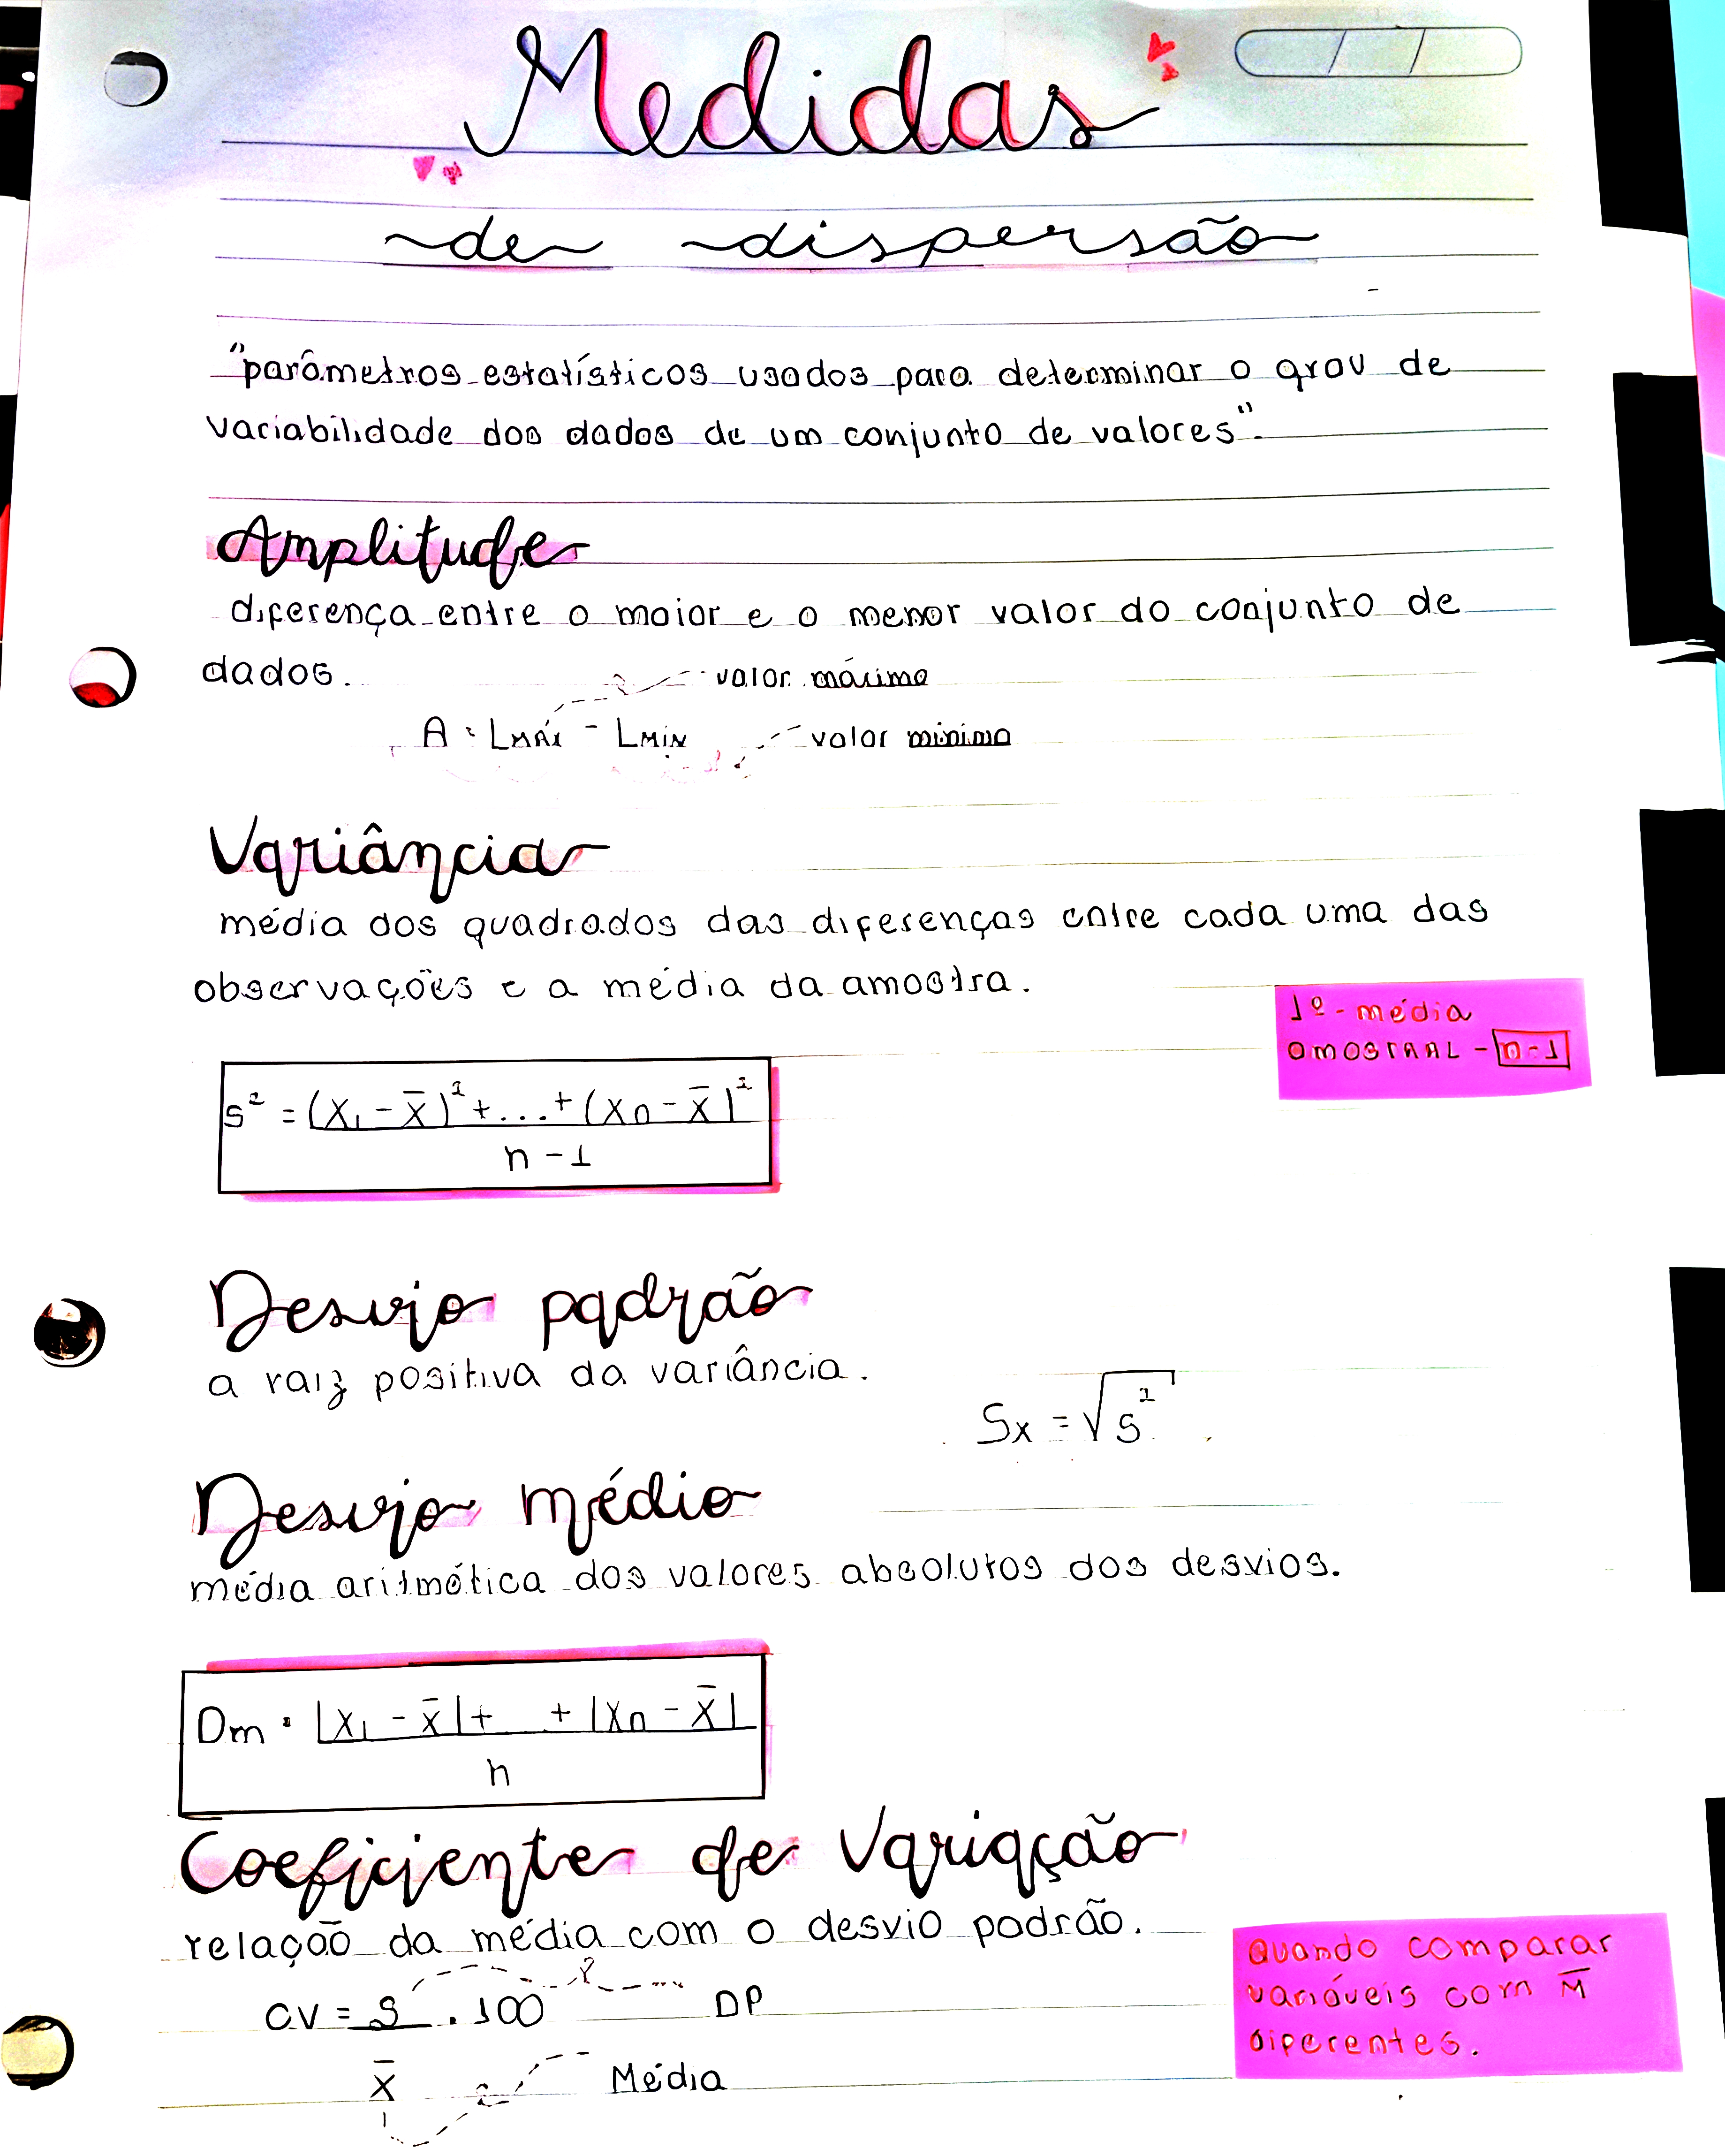 Medidas
de dispersão
"parâmetros estatísticos usados para determinar o grau de
variabilidade dos dados de um conjunto de valores".
Amplitude
diferença entre o maior e o menor valor do conjunto de
dados.
valor máximo
A = LMÁX - LMIN
valor mínimo
Variância
média dos quadrados das diferenças entre cada uma das
observações e a média da amostra.
1º - média
amostral - n-1
s² = (x₁ - x̄)² + ... + (xn - x̄)²
n - 1
Desvio padrão
a raiz positiva da variância.
Sx = √s²
Desvio médio
média aritmética dos valores absolutos dos desvios.
Dm = |x₁ - x̄| + ... + |xn - x̄|
n
Coeficiente de Variação
relação da média com o desvio padrão.
CV = S . 100
DP
x̄
Média
Quando comparar
variáveis com M̄
diferentes.